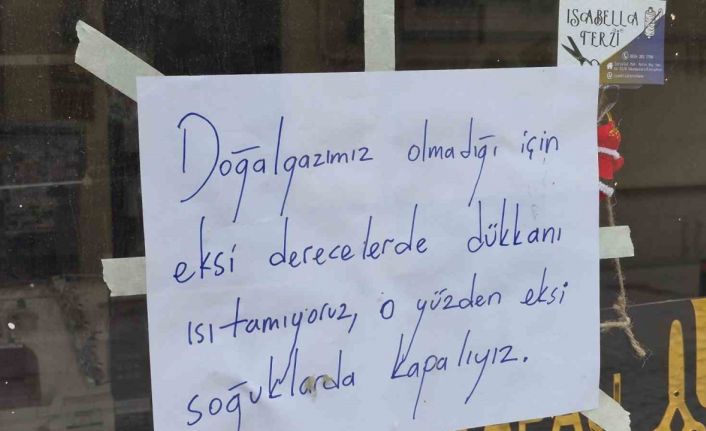 ISABELLA
TERZİ
Doğalgazımız olmadığı için
eksi derecelerde dükkanı
ısıtamıyoruz, o yüzden eksi
soğuklarda kapalıyız.